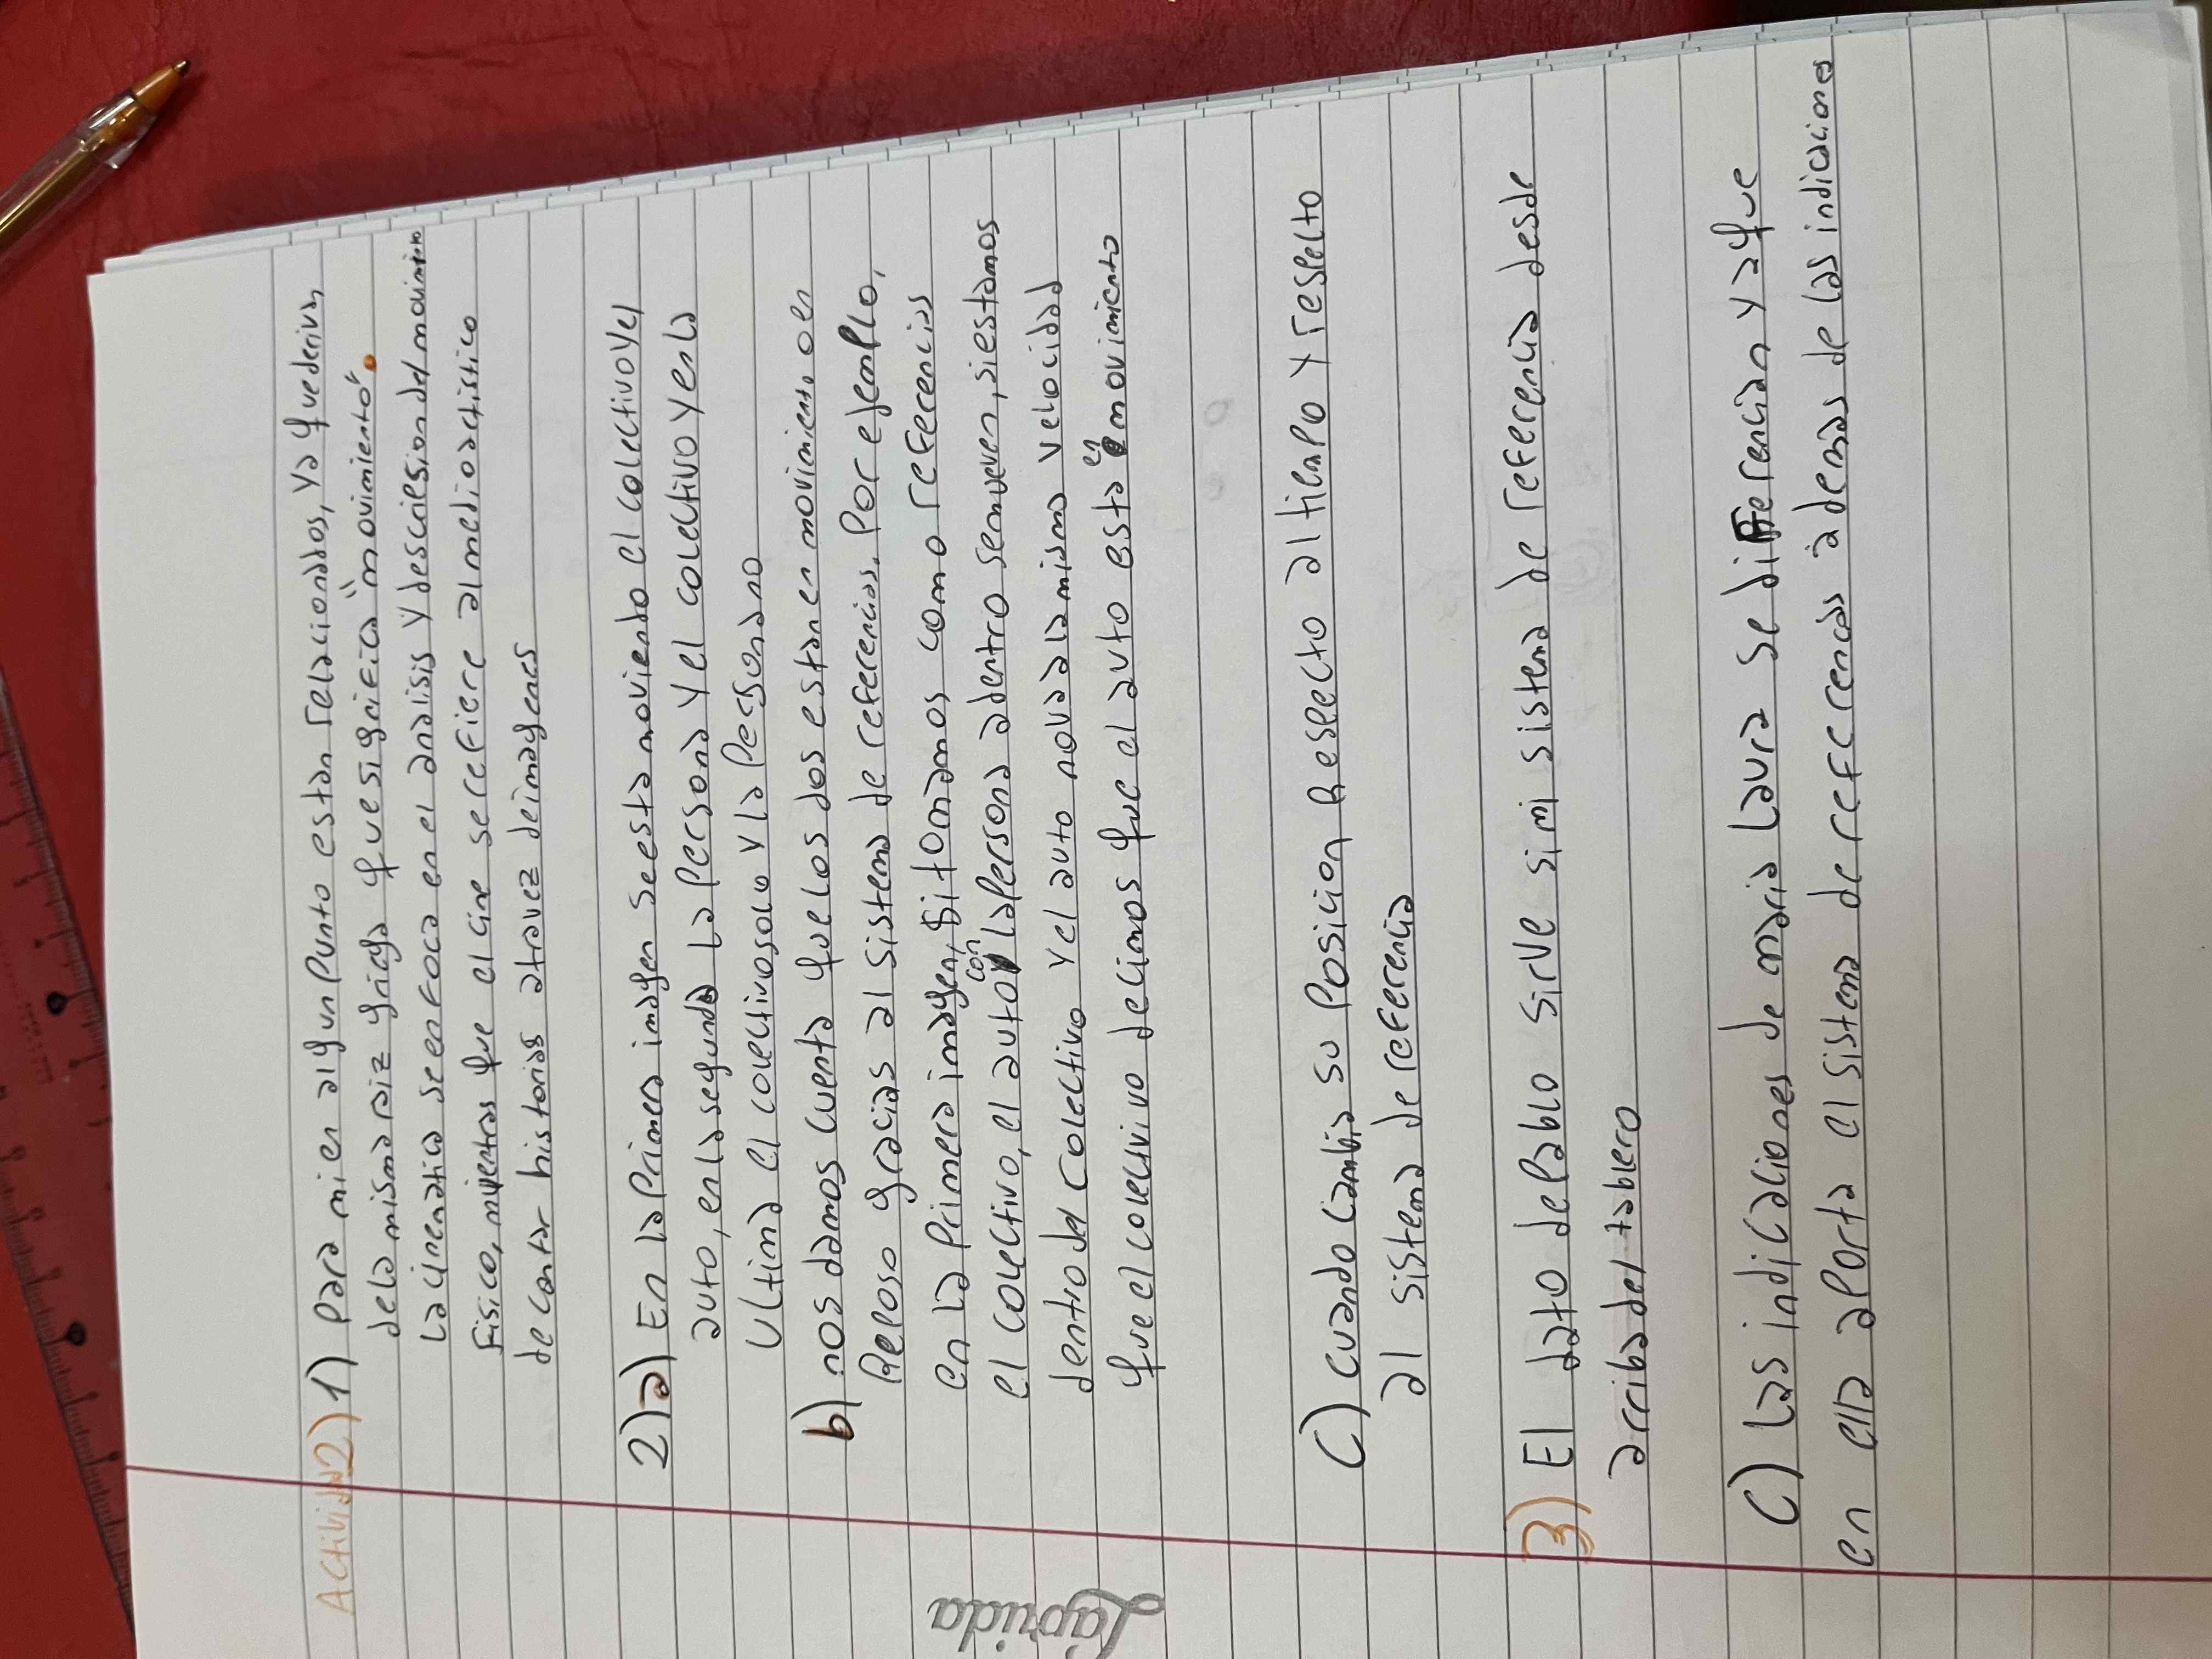 Actividad 2) 1) Para mi en algun Punto estan relacionados, ya que derivan
de la misma raiz griega que significa "movimiento".
La cinematica se enfoca en el analisis y descripsion del movimiento
Fisico, mientras que el cine se refiere al medio artistico
de contar historias atravez de imagenes
2)a) En la primera imagen se esta moviendo el colectivo y el
auto, en la segunda la persona y el colectivo y en la
Ultima el colectivo solo y la Persona no
b) nos damos cuenta que los dos estan en movimiento o en
Reposo gracias al sistema de referencias. Por ejemplo,
en la Primera imagen, si tomamos como referencias
el colectivo, el auto con la persona adentro se mueven, si estamos
dentro del colectivo y el auto no va a la misma velocidad
que el colectivo decimos que el auto esta en movimiento
C) cuando cambia su Posicion Respecto al tiempo y respecto
al sistema de referencia
3) El dato de Pablo sirve si mi sistema de referencia desde
arriba del tablero
C) Las indicaciones de maria Laura se diferencian ya que
en ella aporta el sistema de referencas ademas de las indicaciones
Laprida